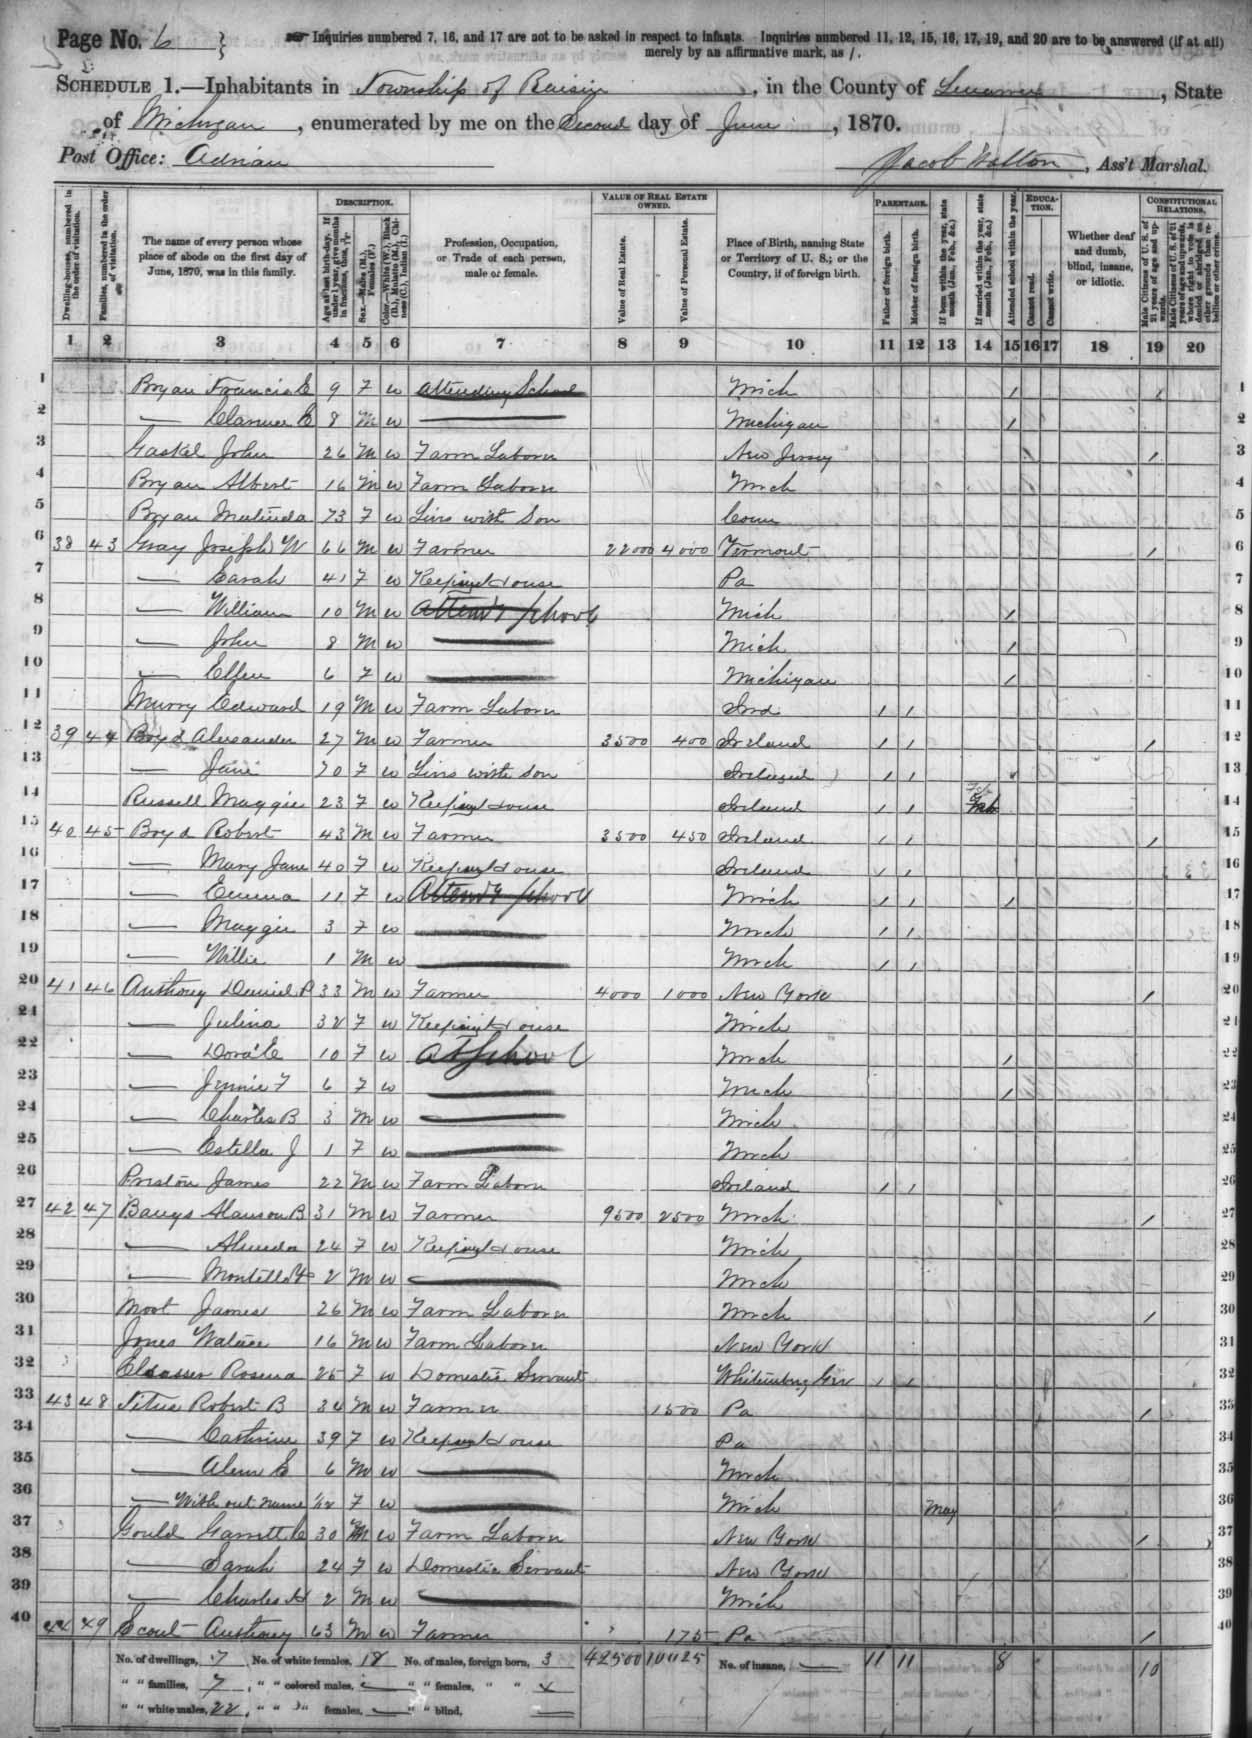 Page No. 6
Inquiries numbered 7, 16, and 17 are not to be asked in respect to infants. Inquiries numbered 11, 12, 15, 16, 17, 19, and 20 are to be answered (if at all)
merely by an affirmative mark, as /.
SCHEDULE 1.—Inhabitants in Township of Raisin, in the County of Lenawee, State
of Michigan, enumerated by me on the Second day of June, 1870.
Post Office: Adrian
Jacob Walton, Ass't Marshal.
Dwelling-houses, numbered in the order of visitation.
Families, numbered in the order of visitation.
The name of every person whose place of abode on the first day of June, 1870, was in this family.
DESCRIPTION.
Age at last birth-day. If under 1 year, give months in fractions, thus, 3/12
Sex.—Males (M.), Females (F.)
Color.—White (W.), Black (B.), Mulatto (M.), Chinese (C.), Indian (I.)
Profession, Occupation, or Trade of each person, male or female.
VALUE OF REAL ESTATE OWNED.
Value of Real Estate.
Value of Personal Estate.
Place of Birth, naming State or Territory of U. S.; or the Country, if of foreign birth.
PARENTAGE.
Father of foreign birth.
Mother of foreign birth.
If born within the year, state month (Jan., Feb., &c.)
If married within the year, state month (Jan., Feb., &c.)
Attended school within the year.
EDUCATION.
Cannot read.
Cannot write.
Whether deaf and dumb, blind, insane, or idiotic.
CONSTITUTIONAL RELATIONS.
Male Citizens of U. S. of 21 years of age and upwards.
Male Citizens of U. S. of 21 years of age and upwards, where right to vote is denied or abridged on other grounds than rebellion or other crime.
1 2 3 4 5 6 7 8 9 10 11 12 13 14 15 16 17 18 19 20
1 Bryan Francis E 9 F W Attending School Mich / / 1
2 — Clarence E 8 M W — Michigan / 2
3 Gaskel John 26 M W Farm Laborer New Jersey / 3
4 Bryan Albert 16 M W Farm Laborer Mich 4
5 Bryan Malinda 73 F W Livs with Son Conn 5
6 38 43 Gray Joseph W 66 M W Farmer 22000 4000 Vermont / 6
7 — Sarah 41 F W Keeping House Pa 7
8 — William 10 M W Attendg School Mich / 8
9 — John 8 M W — Mich / 9
10 — Ellen 6 F W — Michigan / 10
11 Murry Edward 19 M W Farm Laborer Ind / / 11
12 39 44 Boyd Alexander 27 M W Farmer 3500 400 Ireland / / / 12
13 — Jane 70 F W Livs with son Ireland / / 13
14 Russell Maggie 23 F W Keeping House Ireland / / 14
15 40 45 Boyd Robert 43 M W Farmer 3500 450 Ireland / / / 15
16 — Mary Jane 40 F W Keeping House Ireland / / 16
17 — Emma 11 F W Attendg School Mich / / / 17
18 — Maggie 3 F W — Mich / / 18
19 — Willie 1 M W — Mich / / 19
20 41 46 Anthony Daniel P 33 M W Farmer 4000 1000 New York / 20
21 — Julina 32 F W Keeping House Mich 21
22 — Dora E 10 F W At School Mich / 22
23 — Jennie F 6 F W — Mich / 23
24 — Charles B 3 M W — Mich 24
25 — Estella J 1 F W — Mich 25
26 Preston James 22 M W Farm Laborer Ireland / / 26
27 42 47 Alanson B 31 M W Farmer 9500 2500 Mich / 27
28 — Almeda 24 F W Keeping House Mich 28
29 — 2 M W — Mich 29
30 Moot James 26 M W Farm Laborer Mich / 30
31 Jones Walace 16 M W Farm Laborer New York 31
32 Elsasser Rosena 25 F W Domestic Servant / / 32
33 43 48 Titus Robert B 34 M W Farmer 1500 Pa / 33
34 — Cathrine 39 F W Keeping House Pa 34
35 — 6 M W — Mich 35
36 — With out name 1/12 F W — Mich May 36
37 Gould Garrett C 30 M W Farm Laborer New York / 37
38 — Sarah 24 F W Domestic Servant New York 38
39 — Charles H 2 M W — Mich 39
40 44 49 Scout Anthony 63 M W Farmer 175 Pa / 40
No. of dwellings, 7 No. of white females, 18 No. of males, foreign born, 3 42500 10025 No. of insane, — 11 11 8 10
" " families, 7 " " colored males, — " " females, " " 4
" " white males, 22 " " " females, — " " blind, —